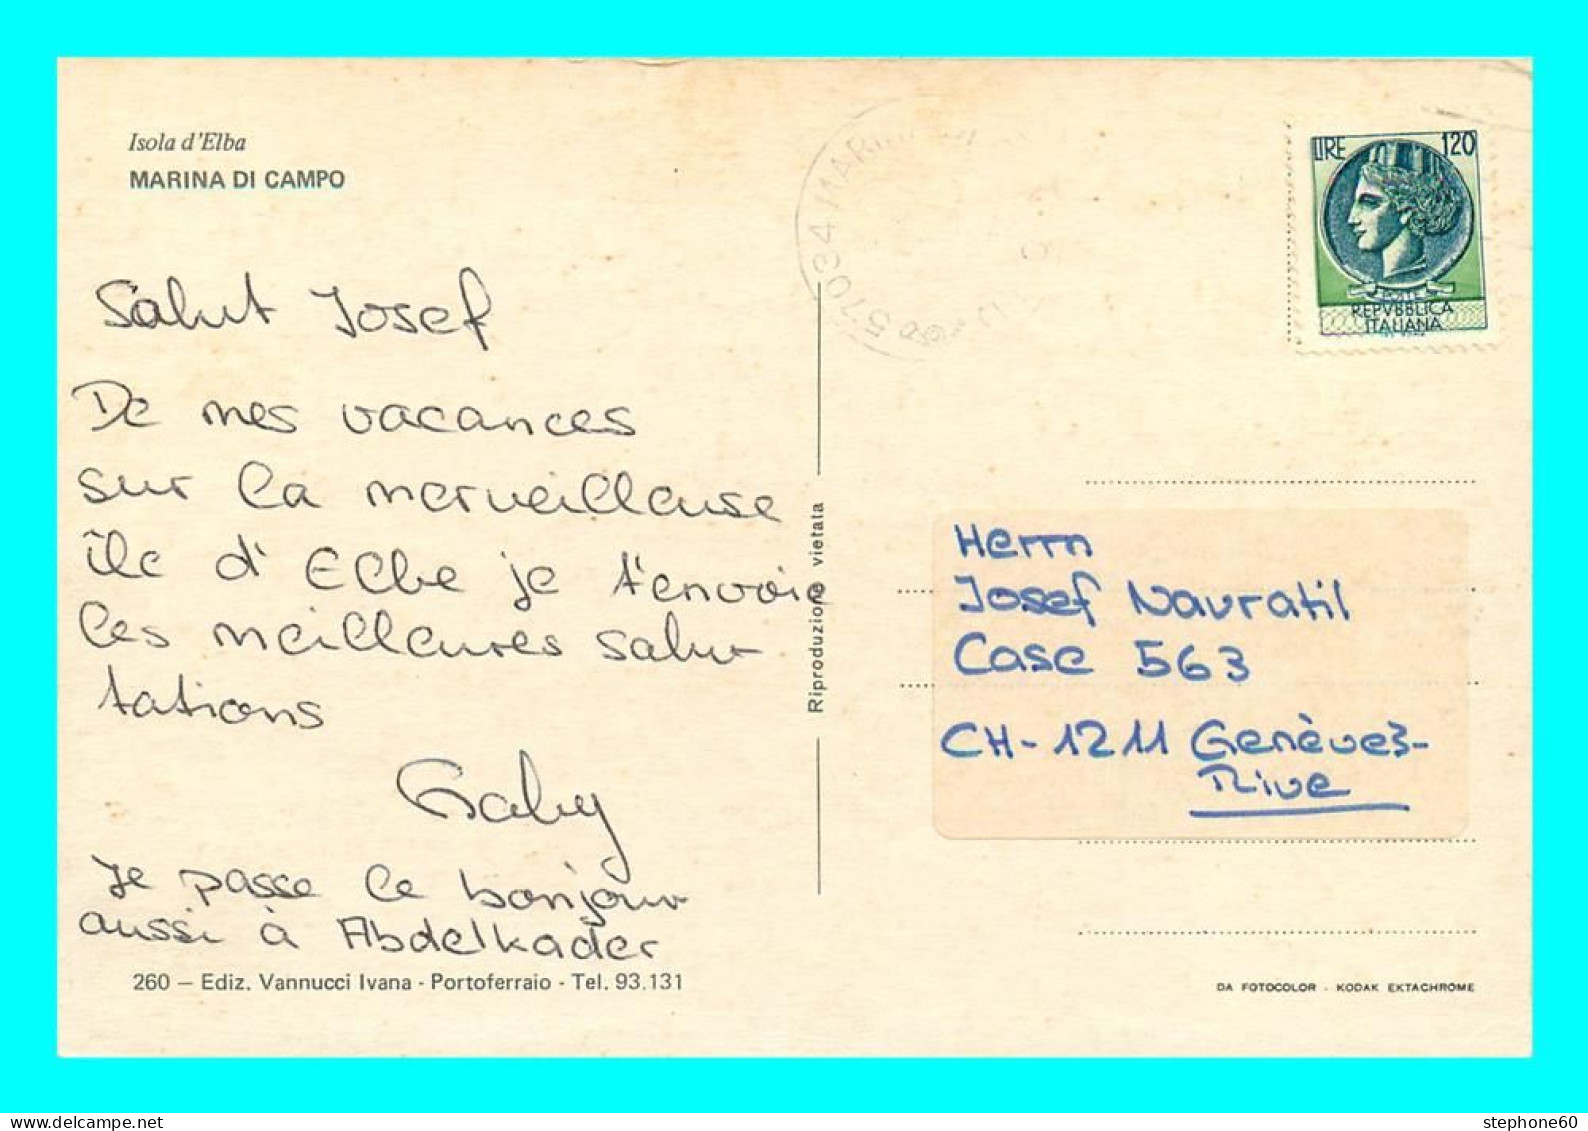 Isola d'Elba
MARINA DI CAMPO
Salut Josef
De mes vacances
sur la merveilleuse
île d'Elbe je t'envoie
les meilleures salu-
tations
Gaby
Je passe le bonjour
aussi à Abdelkader
260 – Ediz. Vannucci Ivana - Portoferraio - Tel. 93.131
Riproduzione vietata
57034 MARIN
LIRE 120
POSTE
REPVBBLICA
ITALIANA
Herrn
Josef Navratil
Case 563
CH-1211 Genève3-
Rive
DA FOTOCOLOR - KODAK EKTACHROME
stephone60